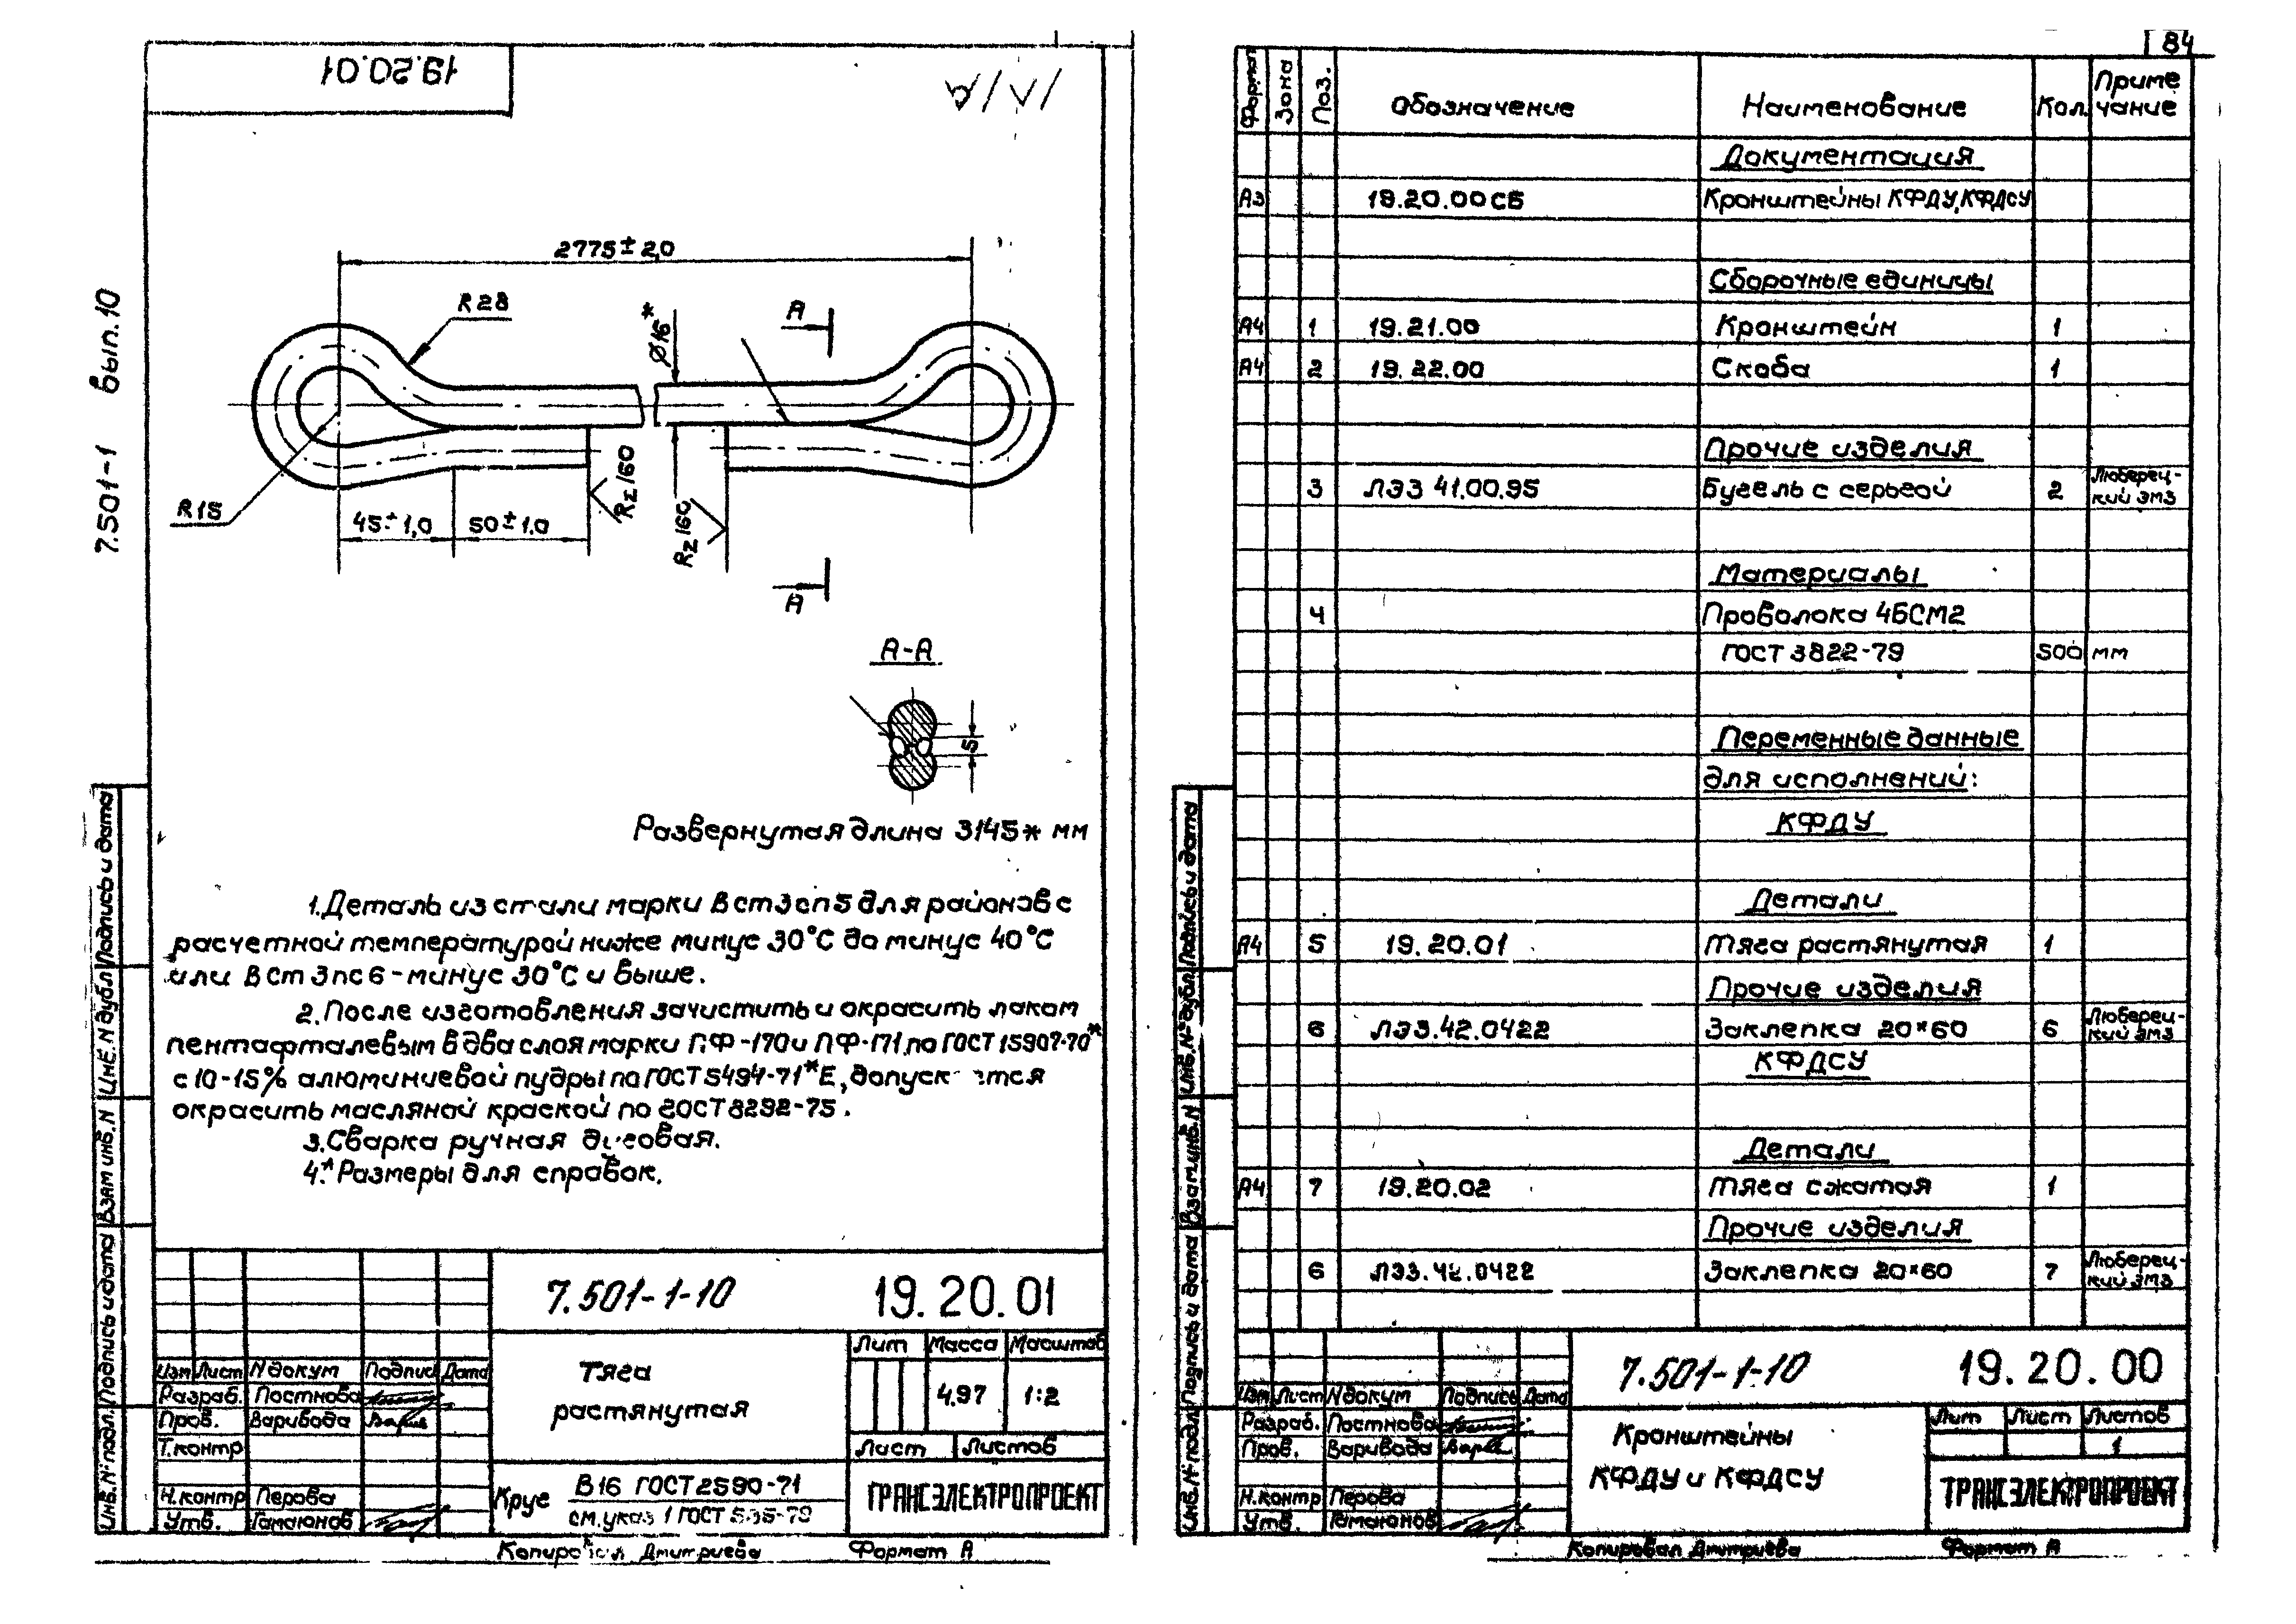 19.20.01
7.501-1 Вып. 10
2775±2,0
R28
⌀16*
А
R15
45±1,0
50±1,0
Rz160
Rz160
А
А-А
5
Развернутая длина 3145* мм
1.Деталь из стали марки Вст3сп5 для районов с
расчетной температурой ниже минус 30°С до минус 40°С
или Вст3пс6-минус 30°С и выше.
2.После изготовления зачистить и окрасить лаком
пентафталевым в два слоя марки ПФ-170 и ПФ-171 по ГОСТ 15907-70*
с 10-15% алюминиевой пудры по ГОСТ 5494-71*Е,
окрасить масляной краской по ГОСТ 8292-75.
3.Сварка ручная дуговая.
4.* Размеры для справок.
Инв.N подл. Подпись и дата Взам инв.N Инв.N дубл Подпись и дата
7.501-1-10
19.20.01
Изм Лист N докум Подпись Дата
Разраб. Постнова
Пров. Варивода
Т.контр
Н.контр Перова
Утв. Гамаюнов
Тяга
растянутая
Лит Масса Масштаб
4,97 1:2
Лист Листов
Круг
В16 ГОСТ 2590-71
см.указ 1 ГОСТ 535-79
ТРАНСЭЛЕКТРОПРОЕКТ
Копировал Дмитриева Формат А
84
Формат Зона Поз. Обозначение Наименование Кол. Приме
чание
Документация
А3 19.20.00СБ Кронштейны КФДУ,КФДСУ
Сборочные единицы
А4 1 19.21.00 Кронштейн 1
А4 2 19.22.00 Скоба 1
Прочие изделия
3 ЛЭЗ 41.00.95 Бугель с серьгой 2 Люберец-
кий ЭМЗ
Материалы
4 Проволока 4БСМ2
ГОСТ 3822-79 500 мм
Переменные данные
для исполнений:
КФДУ
Детали
А4 5 19.20.01 Тяга растянутая 1
Прочие изделия
6 ЛЭЗ.42.0422 Заклепка 20×60 6 Люберец-
кий ЭМЗ
КФДСУ
Детали
А4 7 19.20.02 Тяга сжатая 1
Прочие изделия
6 ЛЭЗ.42.0422 Заклепка 20×60 7 Люберец-
кий ЭМЗ
Инв.N подл Подпись и дата Взам.инв.N Инв.N дубл. Подпись и дата
7.501-1-10
19.20.00
Изм Лист N докум Подпись Дата
Разраб. Постнова
Пров. Варивода
Н.контр Перова
Утв. Гамаюнов
Кронштейны
КФДУ и КФДСУ
Лит Лист Листов
1
ТРАНСЭЛЕКТРОПРОЕКТ
Копировал Дмитриева Формат А